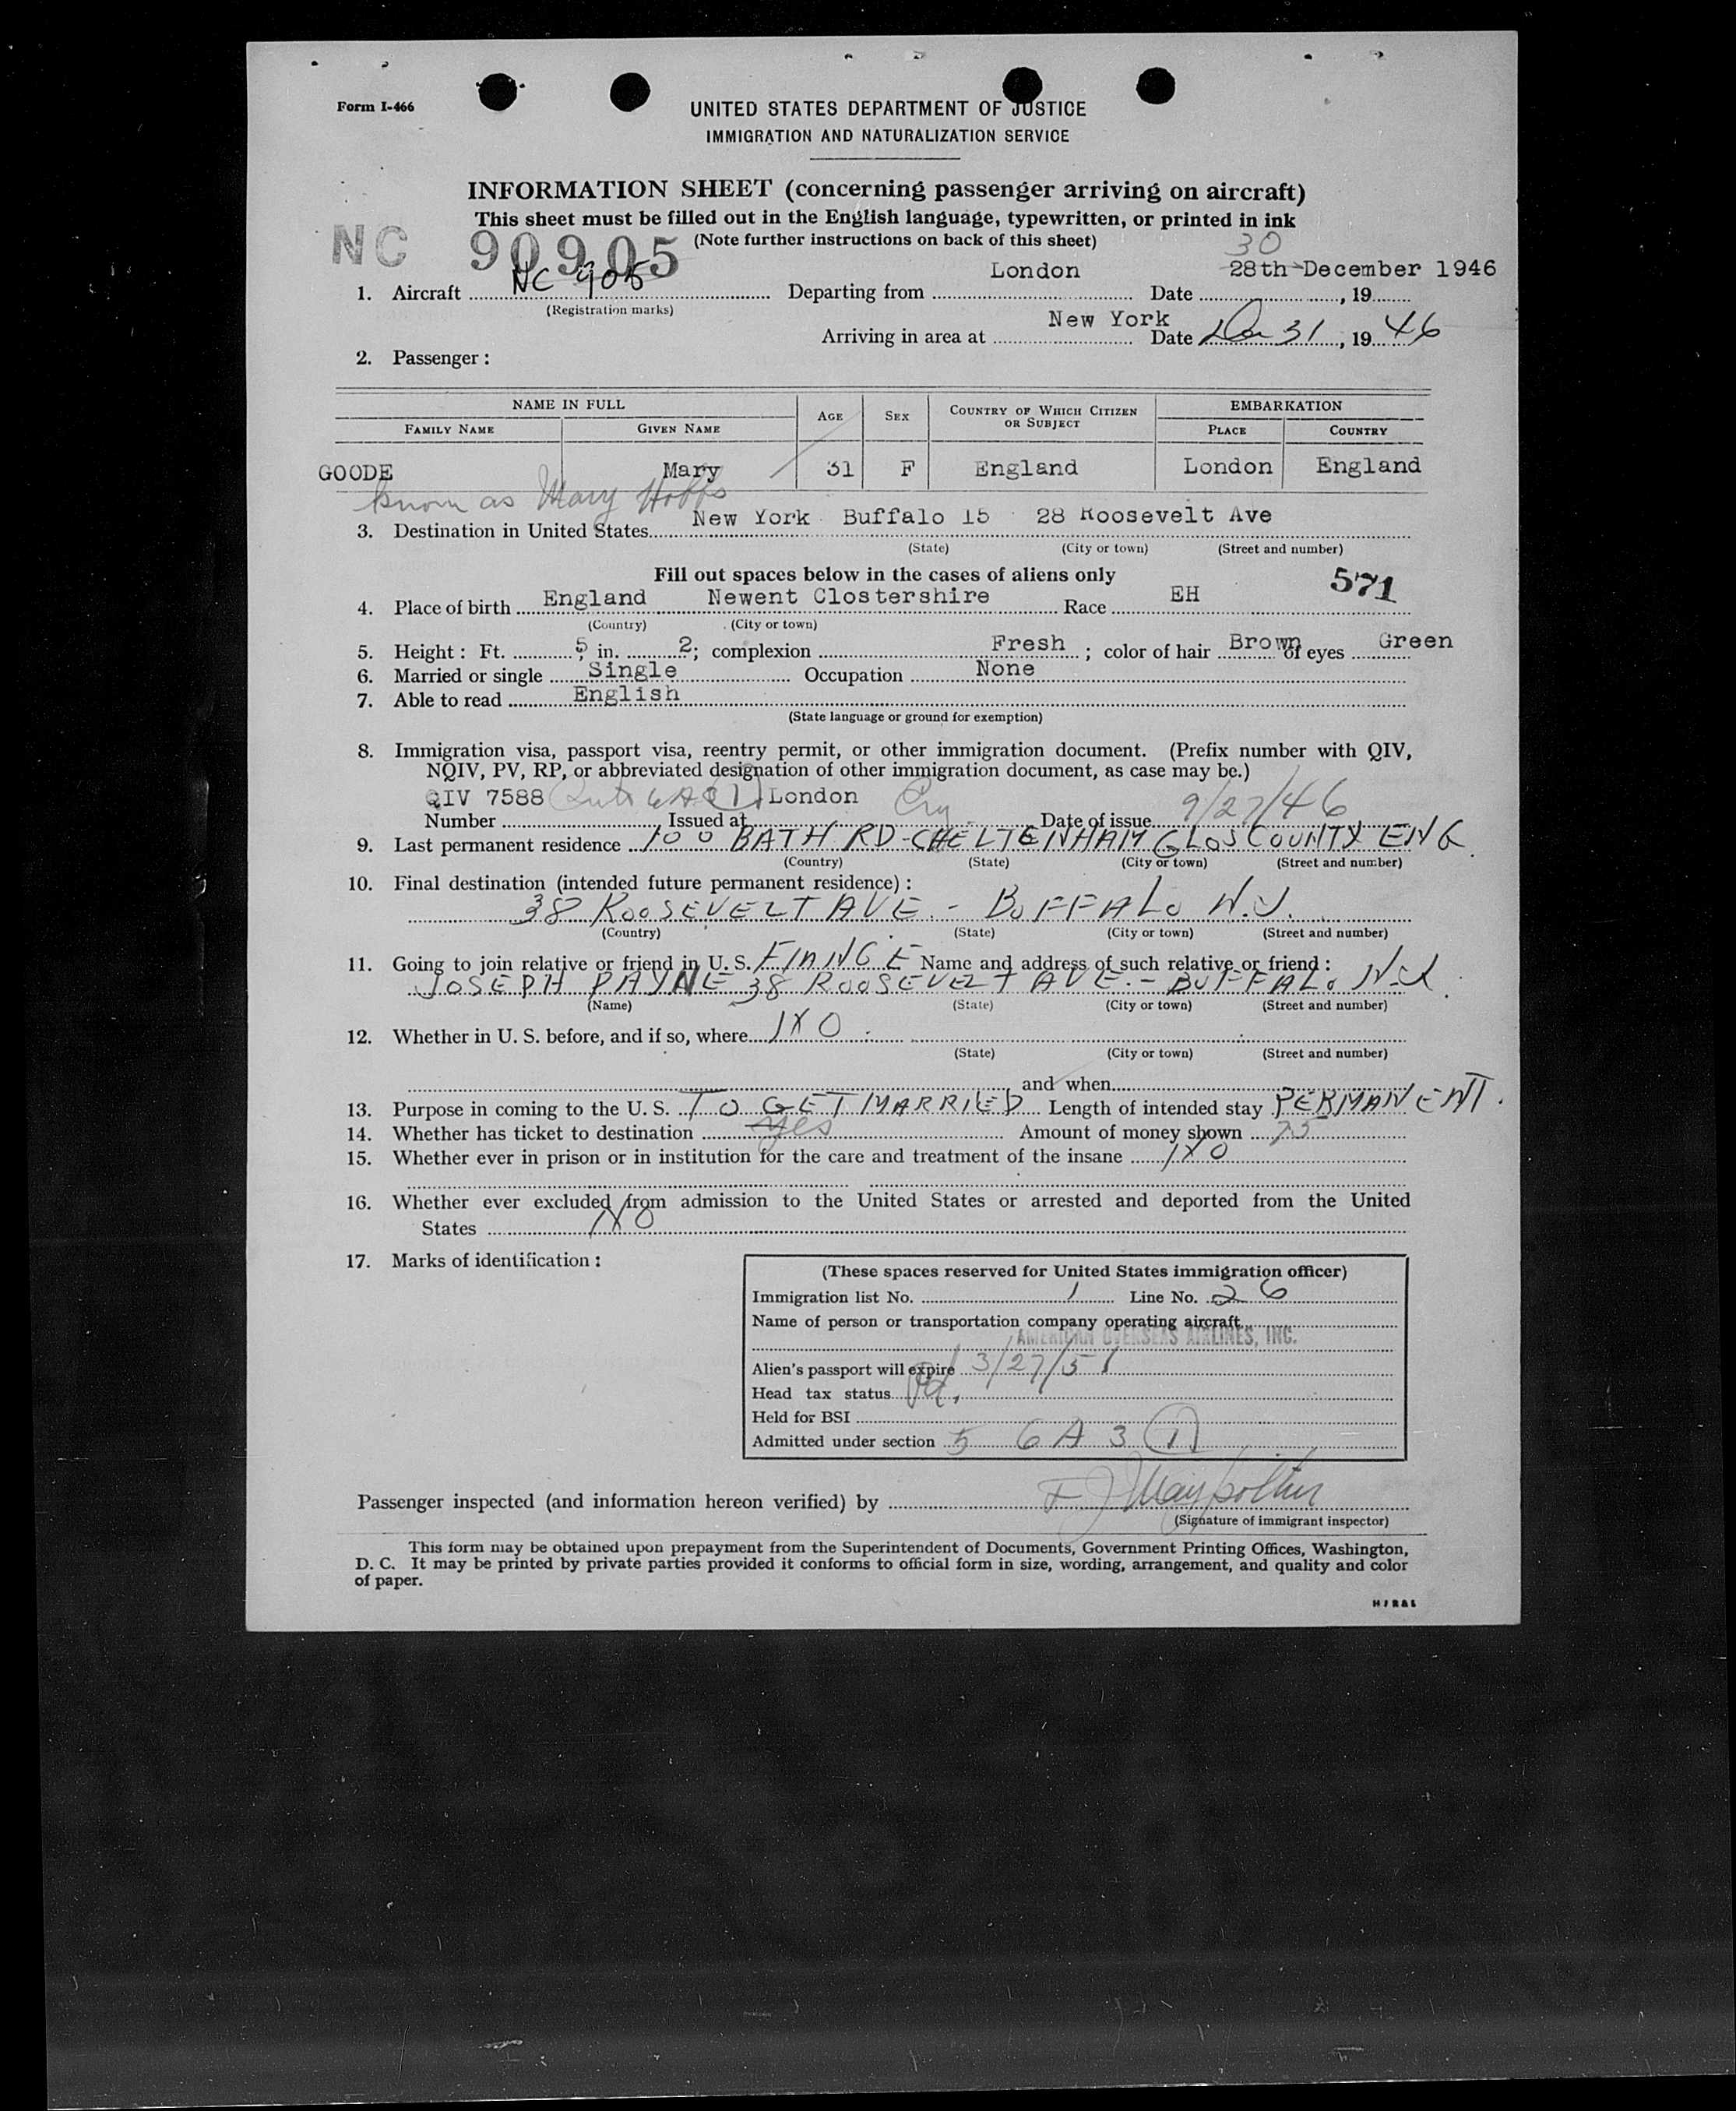 Form I-466
UNITED STATES DEPARTMENT OF JUSTICE
IMMIGRATION AND NATURALIZATION SERVICE
INFORMATION SHEET (concerning passenger arriving on aircraft)
This sheet must be filled out in the English language, typewritten, or printed in ink
(Note further instructions on back of this sheet)
NC 90905
30
London 28th December 1946
1. Aircraft NC 905 Departing from Date , 19
(Registration marks)
New York
Arriving in area at Date Dec 31, 19 46
2. Passenger :
NAME IN FULL AGE SEX COUNTRY OF WHICH CITIZEN OR SUBJECT EMBARKATION
FAMILY NAME GIVEN NAME PLACE COUNTRY
GOODE Mary 31 F England London England
known as Mary Hobbs
3. Destination in United States New York Buffalo 15 28 Roosevelt Ave
(State) (City or town) (Street and number)
Fill out spaces below in the cases of aliens only
571
4. Place of birth England Newent Clostershire Race EH
(Country) (City or town)
5. Height : Ft. 5 in. 2; complexion Fresh ; color of hair Brown of eyes Green
6. Married or single Single Occupation None
7. Able to read English
(State language or ground for exemption)
8. Immigration visa, passport visa, reentry permit, or other immigration document. (Prefix number with QIV,
NQIV, PV, RP, or abbreviated designation of other immigration document, as case may be.)
QIV 7588 6A3(1) London 9/27/46
Number Issued at Date of issue
9. Last permanent residence 100 BATH RD-CHELTENHAM GLOS COUNTY ENG.
(Country) (State) (City or town) (Street and number)
10. Final destination (intended future permanent residence) :
38 ROOSEVELT AVE. - BUFFALO N.Y.
(Country) (State) (City or town) (Street and number)
11. Going to join relative or friend in U. S. FIANCE Name and address of such relative or friend :
JOSEPH PAYNE 38 ROOSEVELT AVE. - BUFFALO N-Y.
(Name) (State) (City or town) (Street and number)
12. Whether in U. S. before, and if so, where NO
(State) (City or town) (Street and number)
and when
13. Purpose in coming to the U. S. TO GET MARRIED Length of intended stay PERMANENT.
14. Whether has ticket to destination yes Amount of money shown 75
15. Whether ever in prison or in institution for the care and treatment of the insane NO
16. Whether ever excluded from admission to the United States or arrested and deported from the United
States NO
17. Marks of identification :
(These spaces reserved for United States immigration officer)
Immigration list No. 1 Line No. 26
Name of person or transportation company operating aircraft
AMERICAN OVERSEAS AIRLINES, INC.
Alien's passport will expire 3/27/51
Head tax status Pd.
Held for BSI
Admitted under section 5 6A3(1)
Passenger inspected (and information hereon verified) by
(Signature of immigrant inspector)
This form may be obtained upon prepayment from the Superintendent of Documents, Government Printing Offices, Washington,
D. C. It may be printed by private parties provided it conforms to official form in size, wording, arrangement, and quality and color
of paper.